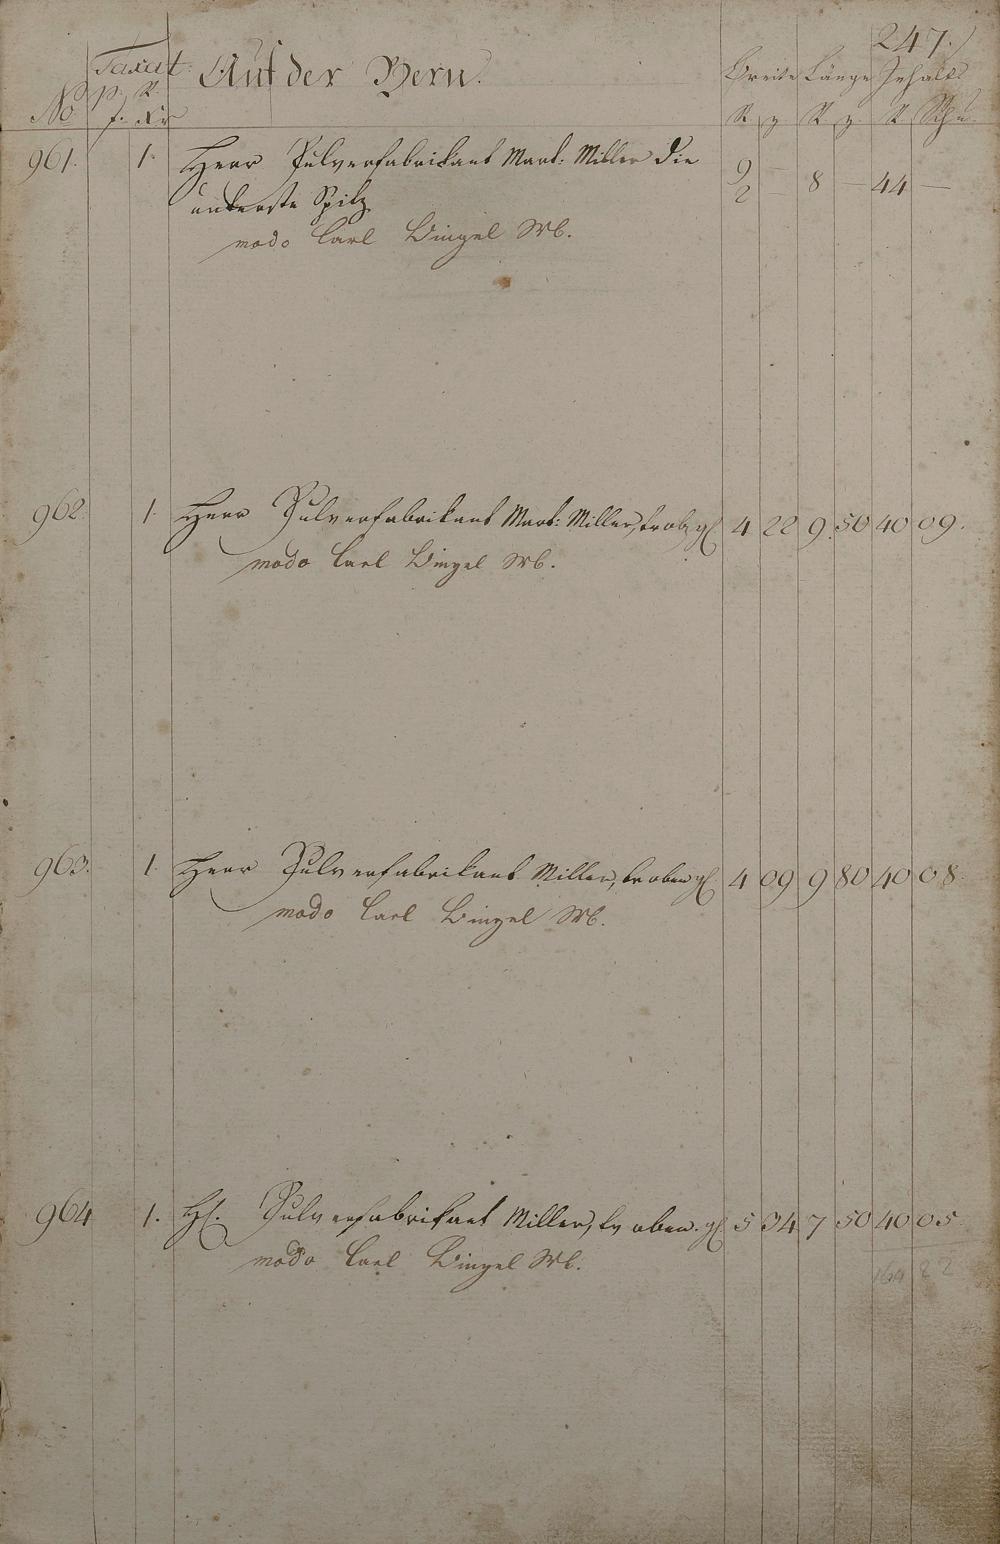 247.
Taxat. Auf der Bern. Breite Länge Inhalt
No p. R. R z. R z. R Schu.
f. xr
961. 1. Herr Pulverfabrikant Mart: Miller die 9/2 — 8 — 44 —
unterste Spitz
modo Carl Bingel Wb.
962. 1. Herr Pulverfabrikant Mart: Miller, 4 22 9. 50 40 09.
modo Carl Bingel Wb.
963. 1. Herr Pulverfabrikant Miller, 4 09 9 80 40 08.
modo Carl Bingel Wb.
964 1. H. Pulverfabrikant Miller, oben 5 34 7 50 40 05.
modo Carl Bingel Wb.
164 22